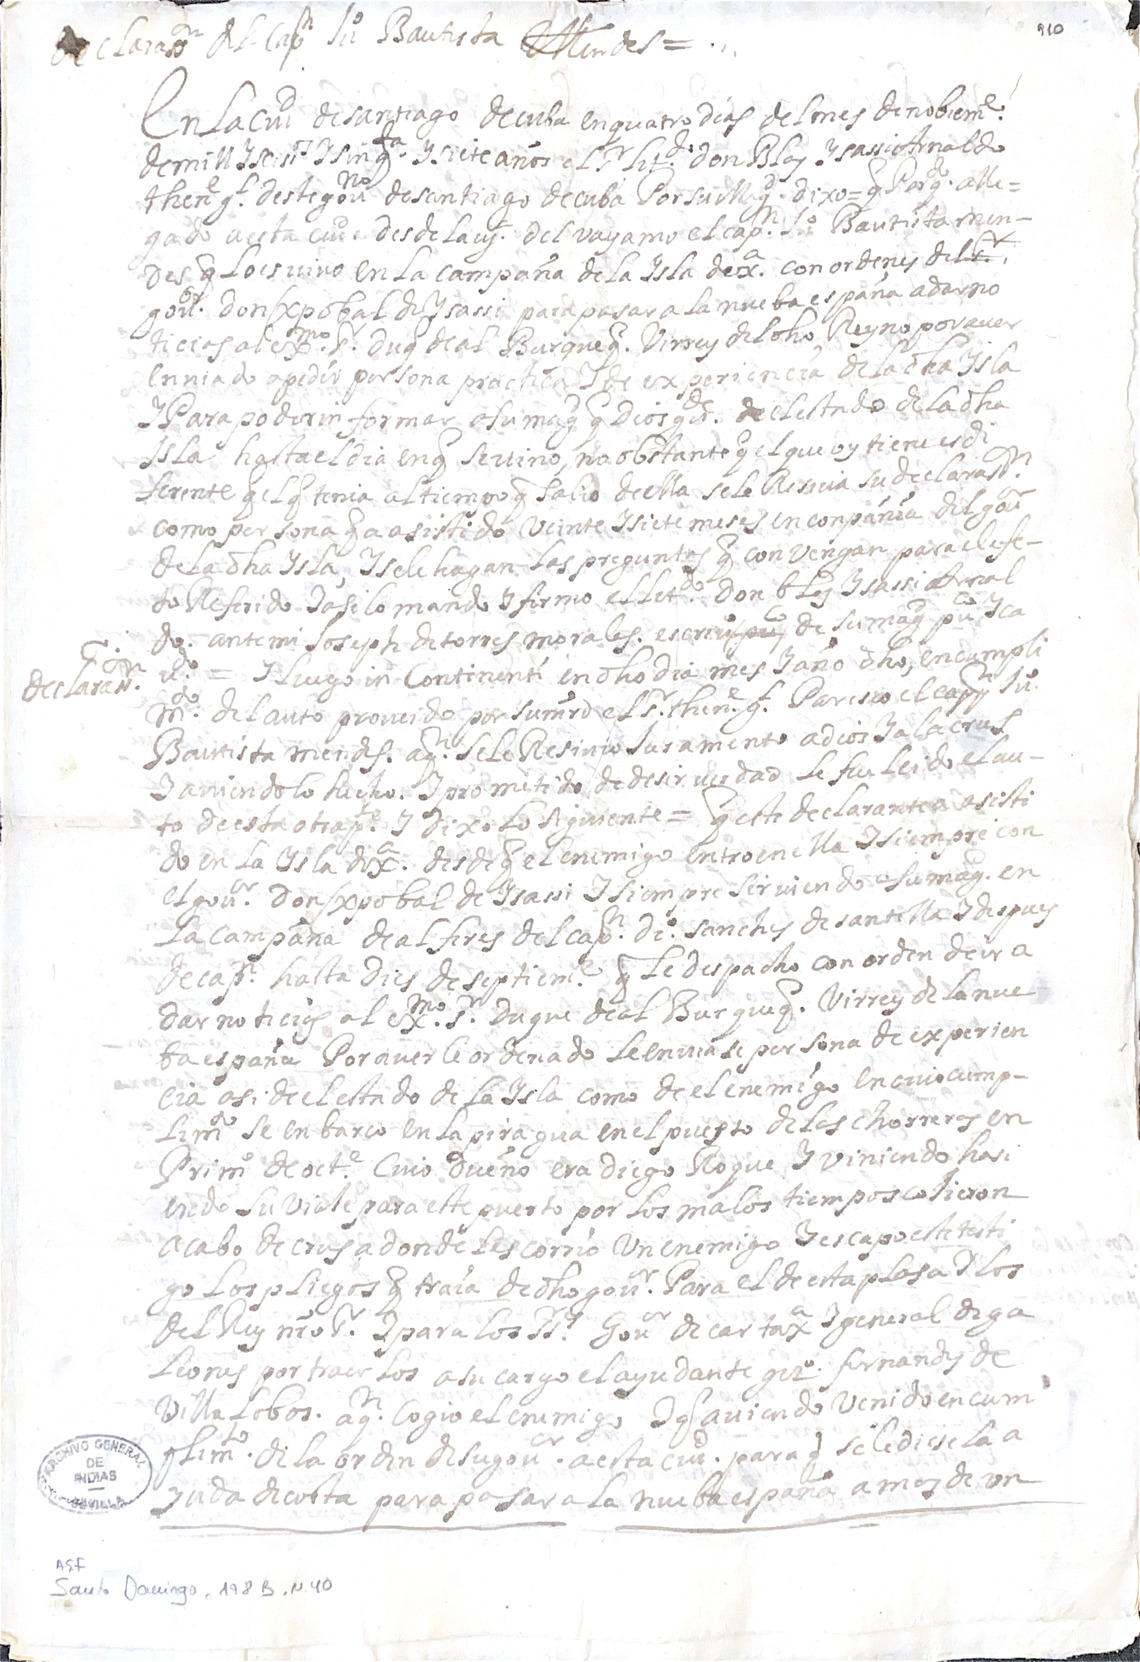 declaraon del capn Juo Bautista Mendes =
910
En La ciud de santiago de cuba en quatro dias del mes de nobieme
de mill y seiss y sinqta y siete años el sr lizdo don Blas ysassi Arnaldo
thene gl deste gouno de santiago de cuba Por su Magd dixo = q Porq a lle=
gado a esta ciud desde la uya del vayamo el capn Juo Bautista men-
des q Los uino en La campaña de la Ysla de xa con ordenes del sr
gouor Don xpobal de Ysassi para pasar a la nueba españa a dar no
ticias al exmo sr duq de al Burqueq Virrey de dho Reyno por auer
enuiado a pedir persona practica y de experiencia de La dha Ysla
Y Para poder informar a su magd q Dios gde de el estado de la dha
Ysla hasta el dia en q se uino, no obstante q el que oy tiene es di
ferente q el q tenia al tiempo q salio de ella se le Resiua su declarason
como persona q a asistido veinte y siete meses en conpañia del gouor
de La dha Ysla, Y se le hagan las preguntas q convengan para el efe-
to Referido Y asi lo mando Y firmo el lizdo Don blas Ysassi Arnal
do. ante mi Joseph de torres morales. escriuo de su magd puco Y ca
udo =
declaraon
Y luego in Continenti en dho dia mes Y año dho, en cumpli
mto del auto proueido por su mrd el sr thene gl Parecio el capn Juo
Bautista mendes. a qn se le Resiuio Juramento a dios Y a la crus
Y auiendolo hecho. Y prometido de desir uerdad Le fue leido el au-
to de esta otra pte Y Dixo Lo siguiente = q este declarante a asisti
do en La Ysla de xa desde q el enemigo entro en ella Y siempre con
el gouor Don xpobal de Ysassi Y siempre siruiendo a su magd en
La campaña de alferes del capn do sanches de santella Y despues
de capn hasta Dies de septieme q Le despacho con orden de ir a
dar noticias al exmo sr Duque de al Burqueq. Virrey de la nue
ba españa Por auer le ordenado Le enuiase persona de experien
cia asi de el estado de la Ysla como de el enemigo en cuio cump-
limto se enbarco en la piragua en el puesto de las chorreras en
Primo de octe Cuio Dueño era diego Roque Y viniendo hasi
endo su viaje para este puerto por los malos tiempos cojieron
a cabo de crus a donde Les corrio Vn enemigo Y escapo este testi
go Los pliegos q traia de dho gouor Para el de esta plasa Y los
del Rey nro sr Y para los srs Gouor de cartaxa Y general de ga
Leones por traerlos a su cargo el ayudante gro fernandes de
Villa Lobos. a qn cogio el enemigo Y q auiendo venido en cum
plimto de la orden de su gouor a esta ciud para q se le diese la a
yuda de costa para pasar a la nueba españa a mas de vn
ARCHIVO GENERAL
DE
INDIAS
SEVILLA
AGI
Santo Domingo, 178 B, N. 40